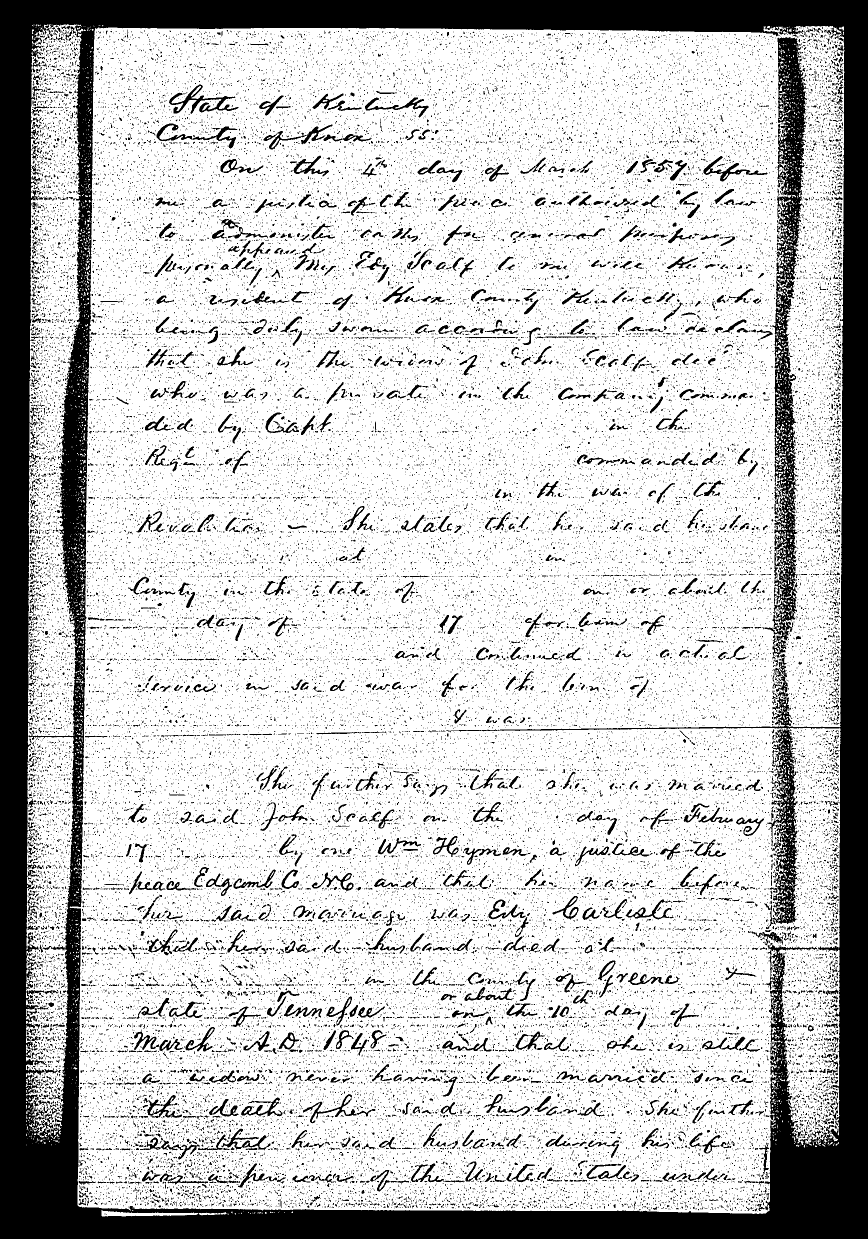 State of Kentucky
County of Knox SS:
On this 4th day of March 1857 before
me a justice of the peace authorized by law
to administer oaths for general purposes
appeared
personally ^ Mrs Edy Scalf to me well known,
a resident of Knox County Kentucky, who
being duly sworn according to law declares
that she is the widow of John Scalf decd
who was a private in the company comman-
ded by Capt. in the
Regt of commanded by
in the war of the
Revolution – She states that her said husband
at in
County in the state of on or about the
day of 17 for term of
and continued in actual
service in said war for the term of
& was
She further says that she was married
to said John Scalf on the day of February
17 by one Wm Hymen, a justice of the
peace Edgcomb Co N.C. and that her name before
her said marriage was Edy Carlisle
that her said husband died at
in the county of Greene &
or about
state of Tennessee on ^ the 10th day of
March A.D. 1848 – and that she is still
a widow never having been married since
the death of her said husband. She further
says that her said husband during his life
was a pensioner of the United States under